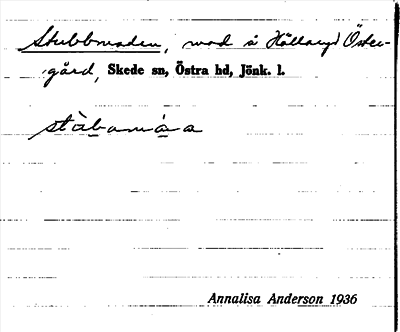 Stubbmaden, mad å Hällaryd Öster-
gård, Skede sn, Östra hd, Jönk. l.
Annalisa Anderson 1936